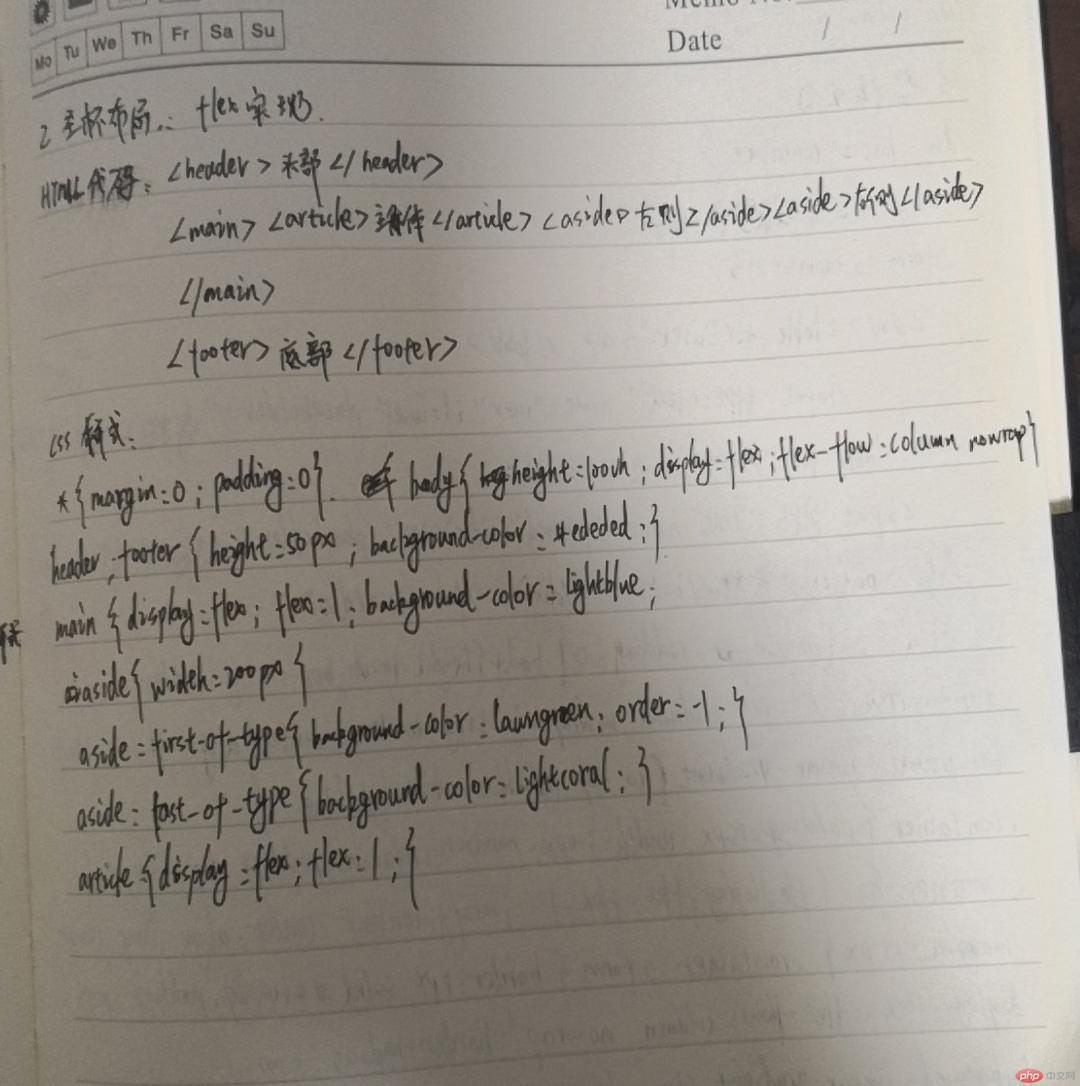 Mo Tu We Th Fr Sa Su
Memo No.
Date / /
2 圣杯布局: flex实现.
HTML代码: <header>头部</header>
<main><article>主体</article><aside>左则</aside><aside>右则</aside>
</main>
<footer>底部</footer>
css 样式:
*{margin=0; padding=0}. body{ height=100vh; display=flex; flex-flow=column nowrap}
header, footer { height=50px; background-color=#ededed; }
main { display=flex; flex=1; background-color=lightblue;
aside{ width=200px {
aside=first-of-type{ background-color=lawngreen; order=-1; {
aside: fast-of-type{background-color=lightcoral; }
article {display=flex; flex=1; {
php 中文网